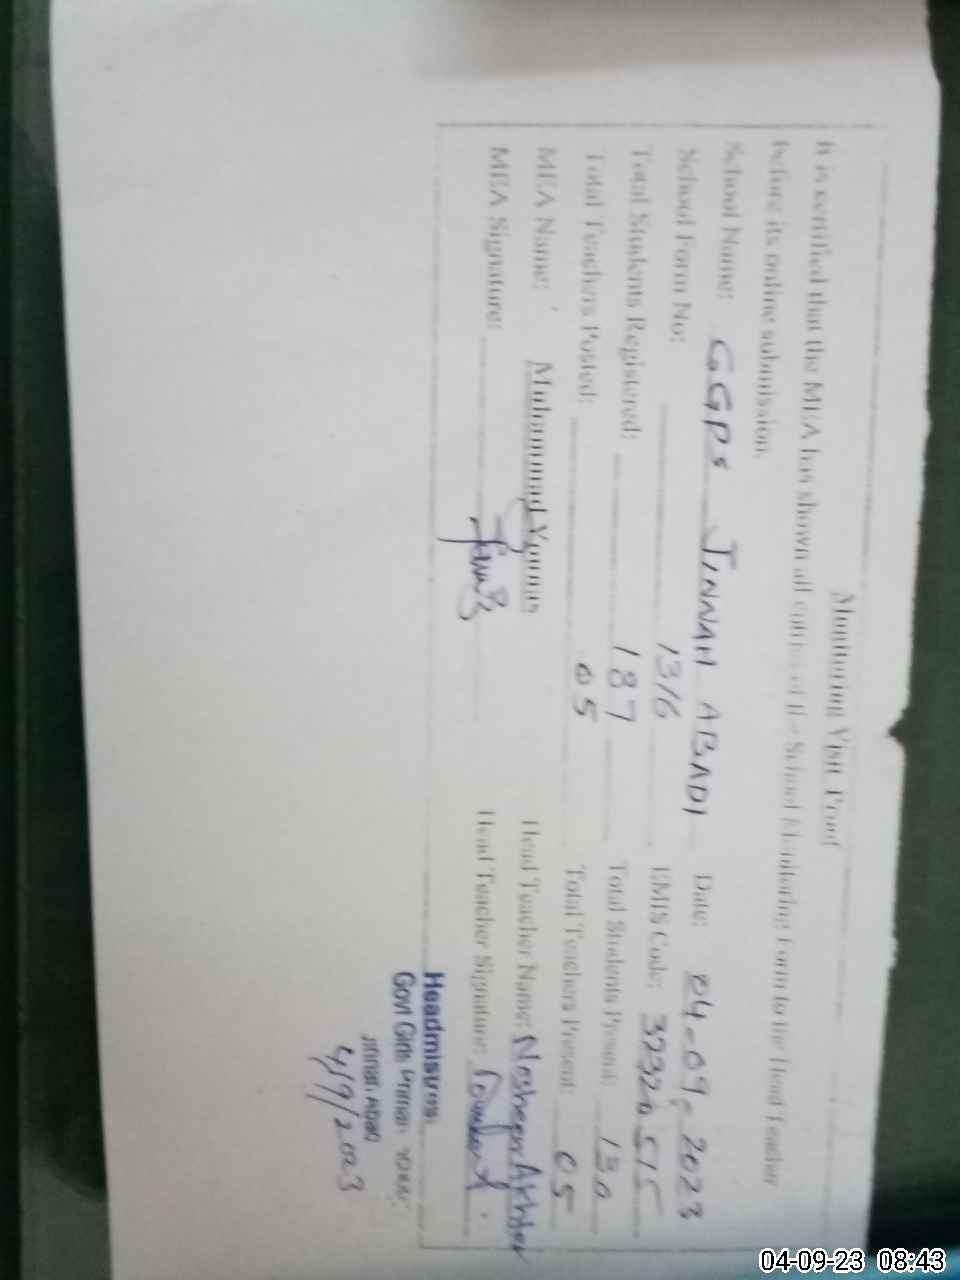 Monitoring Visit Proof
It is certified that the MEA has shown all entries of the School Monitoring Form to the Head Teacher
before its online submission.
School Name: GGPS JINNAH ABADI Date: 04-09-2023
School Form No: 1316 EMIS Code: 32320515
Total Students Registered: 187 Total Students Present: 130
Total Teachers Posted: 05 Total Teachers Present: 05
MEA Name: Muhammad Younas Head Teacher Name: Nosheen Akhter
MEA Signature: Head Teacher Signature:
Headmistress
Govt Girls Primary
Jinnah Abadi
4/9/2023
04-09-23 08:43